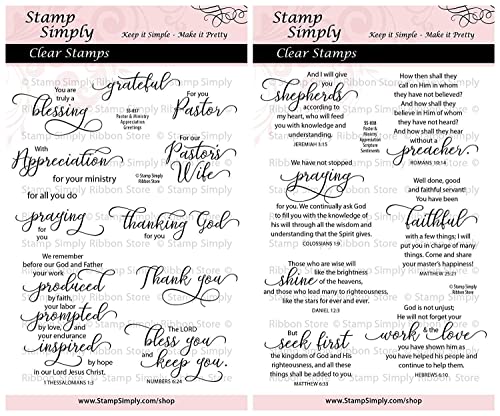 Stamp
Simply
Keep it Simple - Make it Pretty
Clear Stamps
You are
truly a
blessing
grateful
SS-837
Pastor & Ministry
Appreciation
Greetings
For you
Pastor
With
Appreciation
for your ministry
for all you do
For our
Pastor's
Wife
© Stamp Simply
Ribbon Store
praying
for
you
thanking God
for you
We remember
before our God and Father
your work
produced
by faith,
your labor
prompted
by love, and
your endurance
inspired
by hope
in our Lord Jesus Christ.
1 THESSALONIANS 1:3
Thank you
The LORD
bless you
and
keep you.
NUMBERS 6:24
www.StampSimply.com/shop
Stamp
Simply
Keep it Simple - Make it Pretty
Clear Stamps
And I will give
you
shepherds
according to
my heart, who will feed
you with knowledge and
understanding.
JEREMIAH 3:15
SS-838
Pastor &
Ministry
Appreciation
Scripture
Sentiments
How then shall they
call on Him in whom
they have not believed?
And how shall they
believe in Him of whom
they have not heard?
And how shall they hear
without a
preacher.
ROMANS 10:14
We have not stopped
praying
for you. We continually ask God
to fill you with the knowledge of
his will through all the wisdom and
understanding that the Spirit gives.
COLOSSIANS 1:9
Well done, good
and faithful servant!
You have been
faithful
with a few things; I will
put you in charge of many
things. Come and share
your master's happiness!
MATTHEW 25:21
Those who are wise will
shine
like the brightness
of the heavens,
and those who lead many to righteousness,
like the stars for ever and ever.
DANIEL 12:3
© Stamp Simply
Ribbon Store
But
seek first
the kingdom of God and His
righteousness, and all these
things shall be added to you.
MATTHEW 6:33
God is not unjust;
He will not forget your
work & the love
you have shown him as
you have helped his people and
continue to help them.
HEBREWS 6:10
www.StampSimply.com/shop